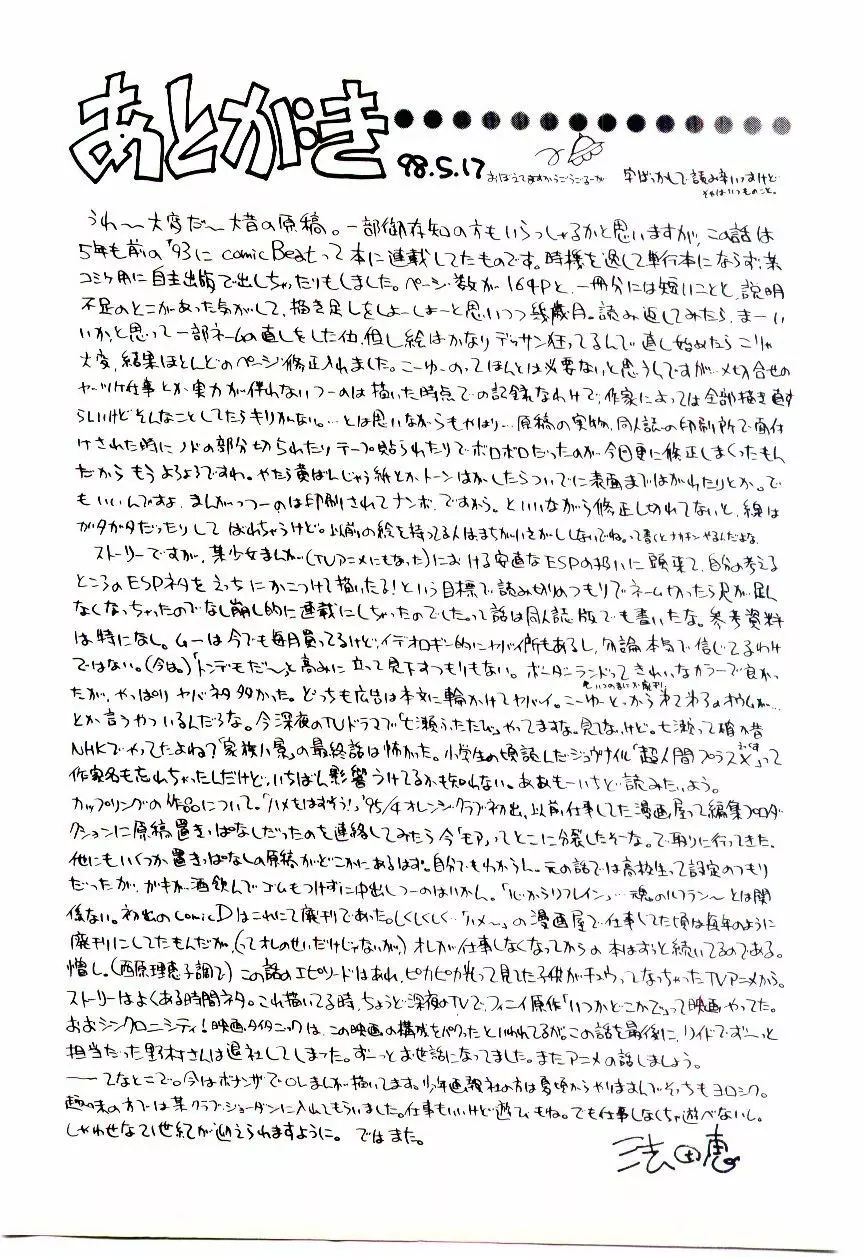 あとがき
98.5.17
おぼえてますかうごうごるーが
字ばっかしで読み辛いっすけど
それはいつものこと。
うわ〜大変だ〜大昔の原稿。一部御存知の方もいらっしゃるかと思いますが、この話は
5年も前の'93にcomic Beatって本に連載してたものです。時機を逸して単行本にならず、某
コミケ用に自主出版で出しちゃったりもしました。ページ数が164Pと、一冊分には短いことと、説明
不足のとこがあった気がして、描き足しをしよーしよーと思いつつ幾歳月。読み返してみたら、まーい
いかと思って一部ネームの直しをした位、但し絵はかなりデッサン狂ってるんで直し始めたらこりゃ
大変、結果ほとんどのページ修正入れました。こーゆーのってほんとは必要ないと思うんですが…〆切合せの
ヤッツケ仕事とか実力が伴わないつーのは描いた時点での記録なわけで、作家によっては全部描き直す
らしいけどそんなことしてたらキリがない。…とは思いながらもやはり…原稿の実物、同人誌の印刷所で面付
けされた時にノドの部分切られたりテープ貼られたりでボロボロだったのが今回更に修正しまくったもん
だからもうよろよろですわ。やたら黄ばんじゃう紙とか、トーンはがしたらついでに表面まではがれたりとか。で
もいいんですよ、まんがっつーのは印刷されてナンボ、ですから。といいながら修正し切れてないと、線は
ガタガタだったりしてばれちゃうけど。以前の絵を持ってる人はまちがいさがししないでね。って書くとナカナカやるんだよな。
ストーリーですが、某少女まんが(TVアニメにもなった)における安直なESPの扱いに頭来て、自分の考える
ところのESPネタをえっちにかこつけて描いたる!という目標で読み切りのつもりでネーム切ったら尺が足ん
なくなっちゃったのでなし崩し的に連載にしちゃったのでした。って話は同人誌版でも書いたな。参考資料
は特になし。ムーは今でも毎月買ってるけど、イデオロギー的にヤバイ所もあるし、勿論本気で信じてるわけ
ではない。(今は。)「トンデモだ〜」と高みに立って見下すつもりもない。ボーダーランドってきれいなカラーで良かっ
もいつのまにか廃刊
たが、やっぱりヤバネタ多かった。どっちも広告は本文に輪かけてヤバイ。こーゆーとっからおそろのオウムが…
とか言うやついるんだろな。今深夜のTVドラマで「七瀬ふたたび」やってますな。見てないけど。七瀬って確か昔
NHKでやってたよね?「家族八景」の最終話は怖かった。小学生の頃読んだジュヴナイル「超人間プラスX」って
作家名も忘れちゃったしだけど、いちばん影響うけてるかも知れない。ああもーいちど読みたいよう。
カップリングの作品について。「ハメもはずそう!」'95/4オレンジクラブ初出、以前仕事してた漫画屋って編集プロダ
クションに原稿置きっぱなしだったのを連絡してみたら今「モア」ってとこに分裂したそーな。で取りに行ってきた。
他にもいくつか置きっぱなしの原稿がどこかにあるはず。自分でもわからん。元の話では高校生って設定のつもり
だったが、ガキが酒飲んでゴムもつけずに中出しつーのはいかん。「心からリフレイン」…魂のルフラン〜とは関
係ない。初出のcomic Dはこれにて廃刊であった。しくしくしく…「ハメ〜」の漫画屋で仕事してた頃は毎年のように
廃刊にしてたもんだが、(ってオレのせいだけじゃないが)オレが仕事しなくなってからの本はずっと続いてるのである。
憎し。(西原理恵子調で)この話のエピソードはあれ、ピカピカ光って見てた子供がキュウってなっちゃったTVアニメから。
ストーリーはよくある時間ネタ。これ描いてる時、ちょうど深夜のTVで、フィニイ原作「いつかどこかで」って映画やってた。
おおシンクロニシティ!映画タイタニックは、この映画の構成をパクったといわれてるが。この話を最後に、リイドでず〜っと
担当だった野村さんは退社してしまった。ず〜っとお世話になってました。またアニメの話しましょう。
――てなとこで。今はボナンザで〇しまが描いてます。少年画報社の方は夏頃からやりますんでそっちもヨロシク。
趣味の方では某クラブ・ジョーダンに入れてもらいました。仕事もいいけど遊びもね。でも仕事しなくちゃ遊べないし。
しあわせな21世紀が迎えられますように。ではまた。